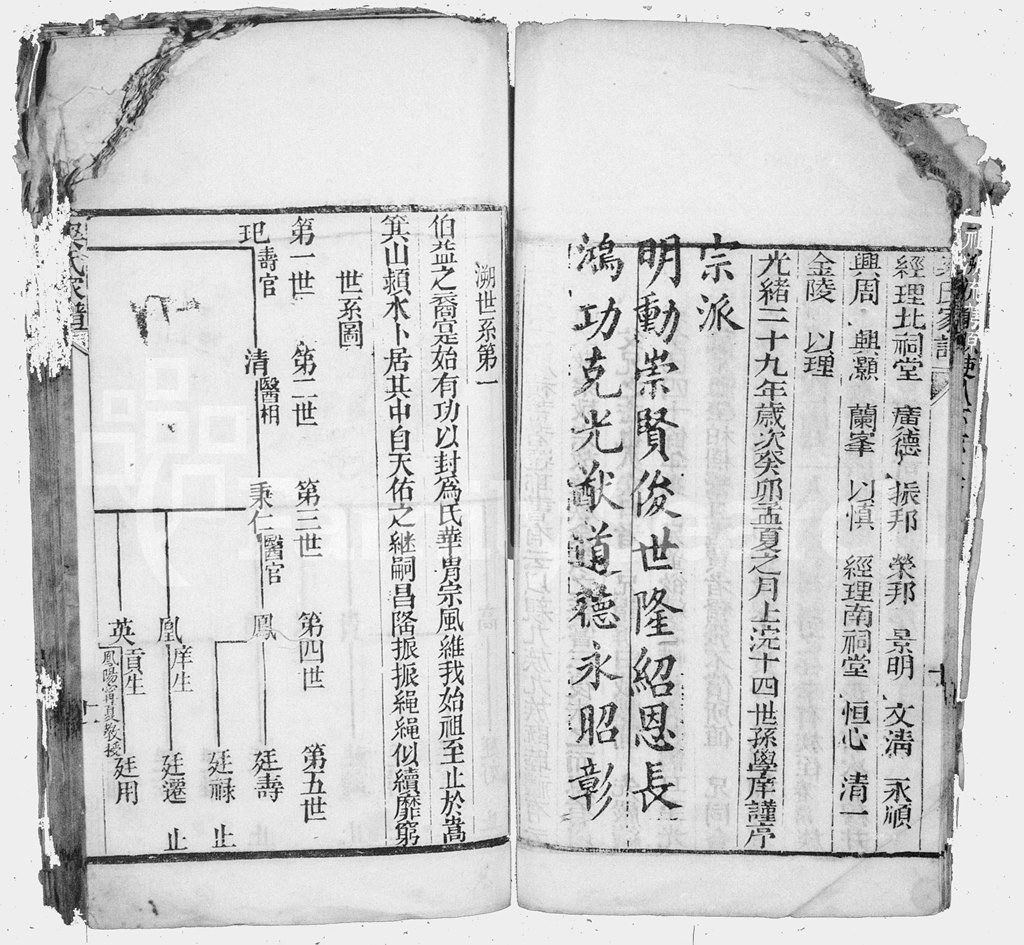 經理北祠堂 廣德 振邦 榮邦 景明 文清 永順
興周 興灝 蘭峯 以慎 經理南祠堂 恒心 清一
金陵 以理
光緒二十九年歲次癸卯孟夏之月上浣十四世孫學庠謹序
宗派
明勳崇賢俊世隆紹恩長
鴻功克光猷道德永昭彰
溯世系第一
伯益之裔寔始有功以封爲氏華胄宗風維我始祖至止於嵩
箕山潁水卜居其中自天佑之繼嗣昌隆振振繩繩似續靡窮
世系圖
第一世 第二世 第三世 第四世 第五世
玘壽官 清醫相 秉仁醫官 鳳 廷壽
廷祿 止
凰庠生 廷選 止
英貢生鳳陽甯夏敎授 廷用
氏家譜
十一